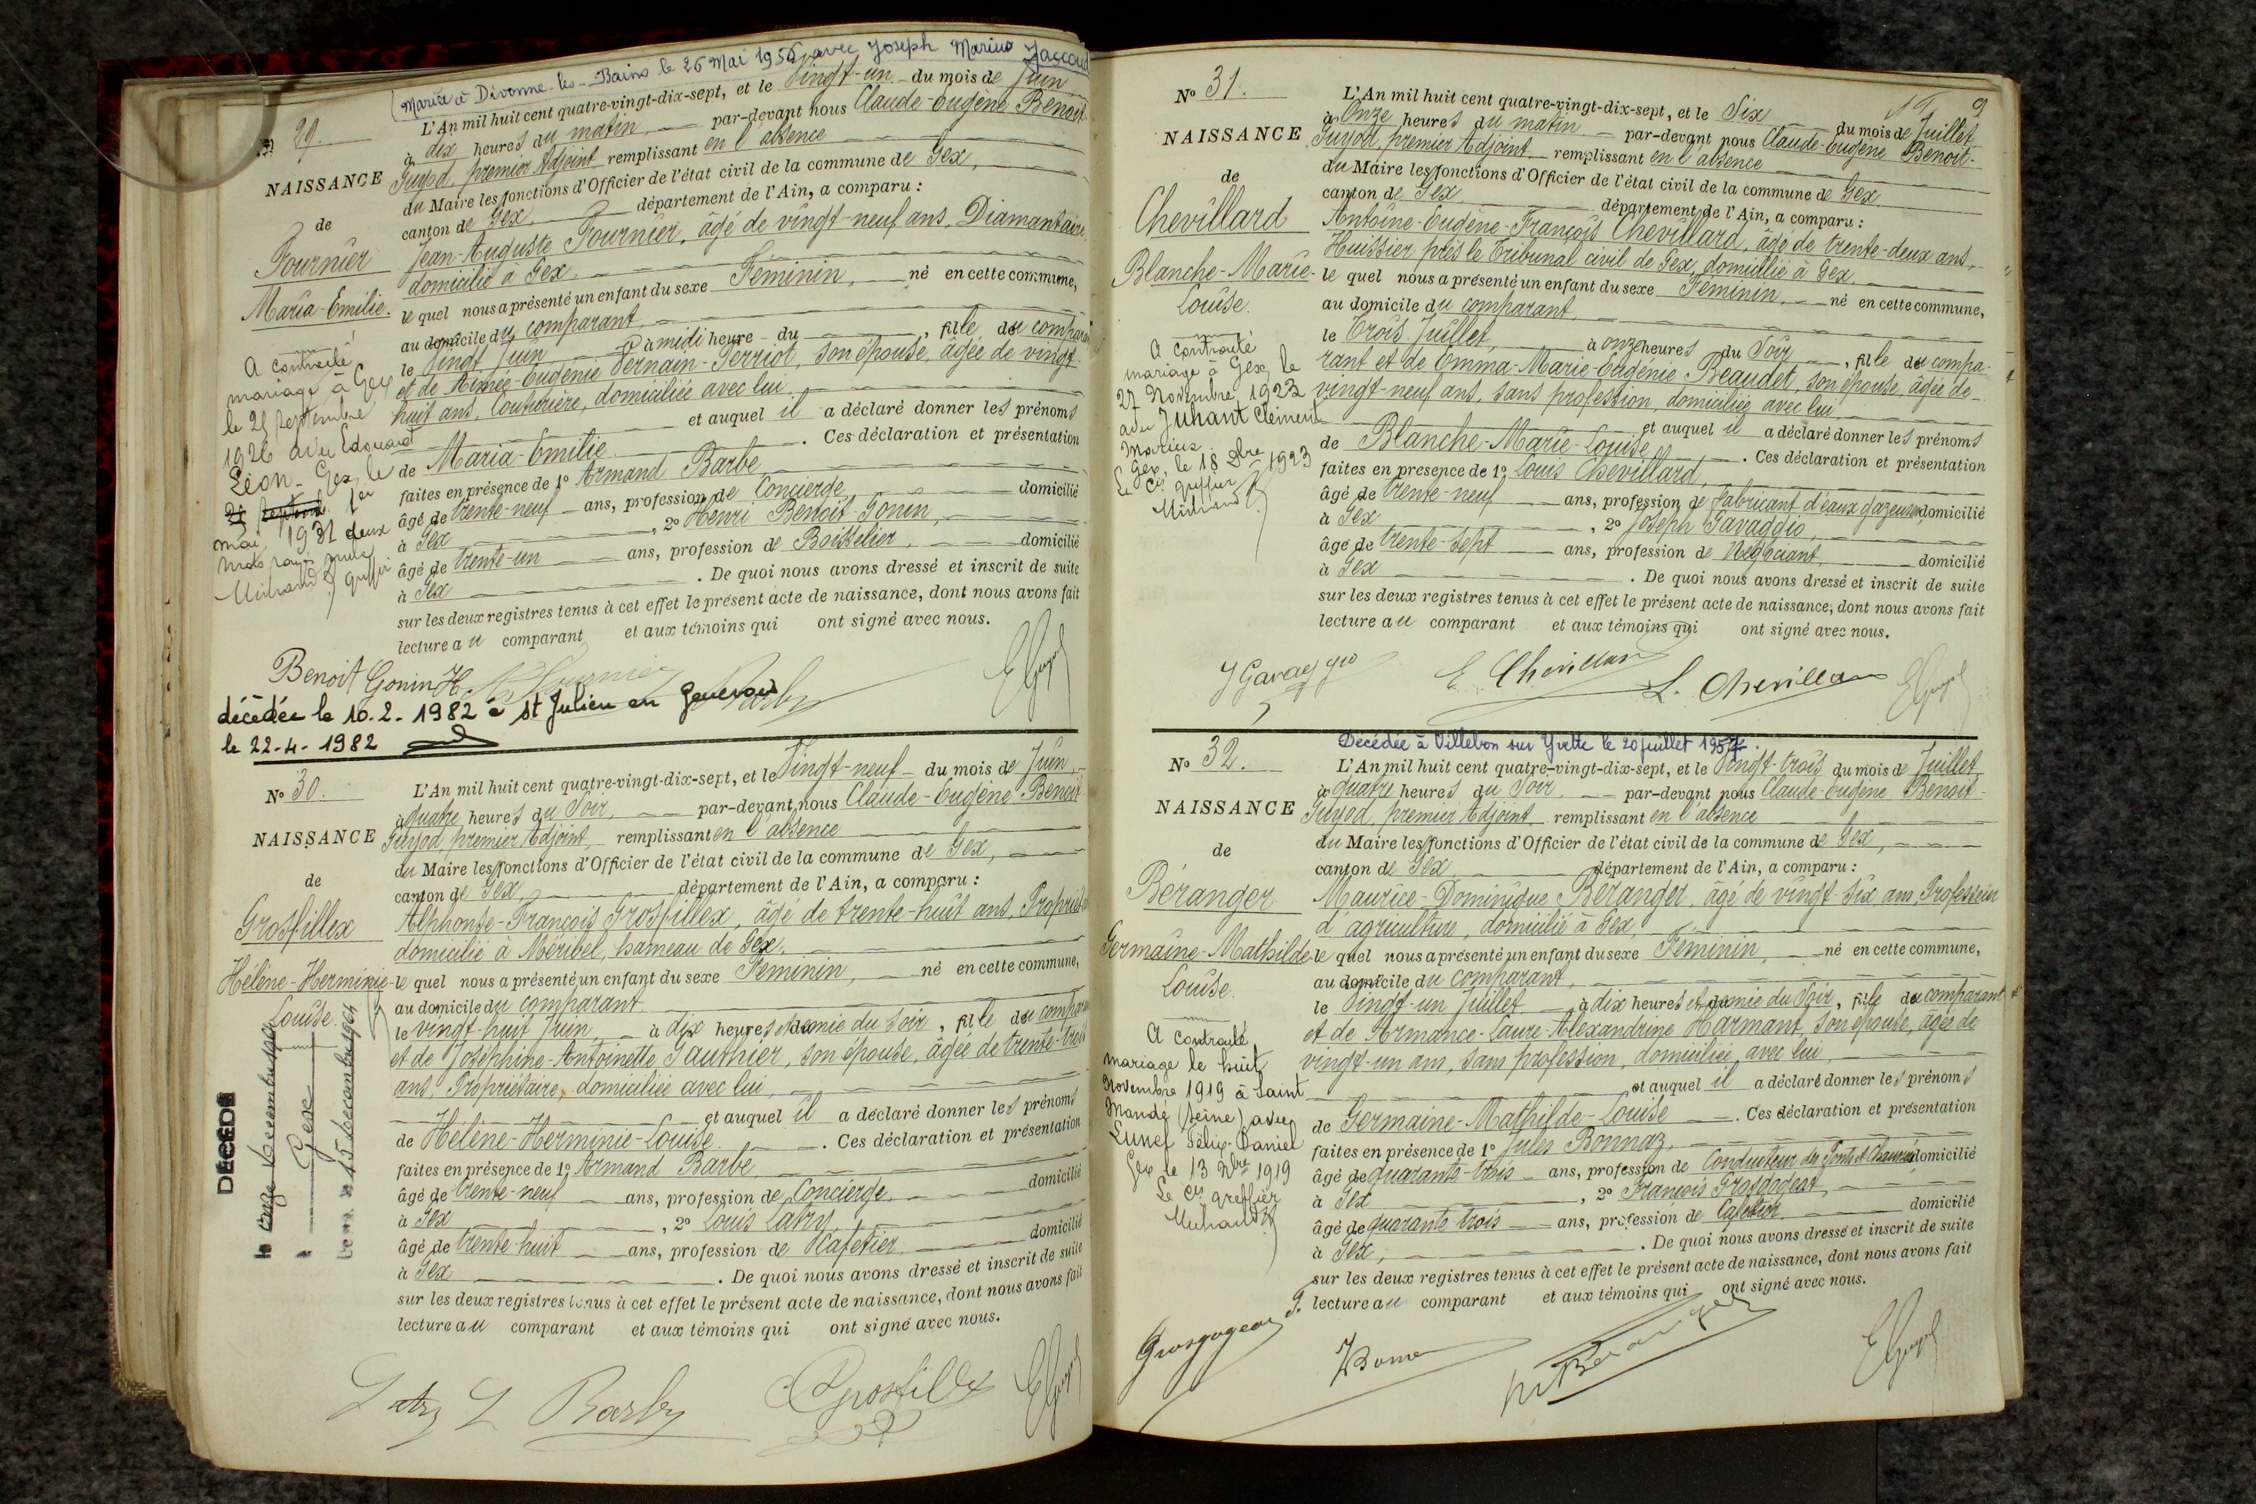 Mariée à Divonne-les-Bains le 26 Mai 1956 avec Joseph Marius Jaccoud
N° 29.
NAISSANCE
de
Fournier
Maria-Emilie.
A contracté
mariage à Gex
le 25 septembre
1926 avec Edouard
Léon - Gex le
1er
mai 1931 deux
mots rayés nuls
greffier
L'An mil huit cent quatre-vingt-dix-sept, et le Vingt-un du mois de Juin
à dix heures du matin, par-devant nous Claude-Eugène Benoit-
Guyod, premier Adjoint remplissant en l'absence
du Maire les fonctions d'Officier de l'état civil de la commune de Gex,
canton de Gex, département de l'Ain, a comparu :
Jean-Auguste Fournier, âgé de vingt-neuf ans, Diamantaire,
domicilié à Gex,
le quel nous a présenté un enfant du sexe Féminin, né en cette commune,
au domicile du comparant,
le Vingt Juin à midi heure du , fille du comparant
et de Aimée-Eugénie Vernain-Perriot, son épouse, âgée de vingt-
huit ans, Couturière, domiciliée avec lui
et auquel il a déclaré donner les prénoms
de Maria-Emilie. Ces déclaration et présentation
faites en présence de 1° Armand Barbe,
âgé de trente-neuf ans, profession de Concierge, domicilié
à Gex , 2° Henri Benoit Gonin,
âgé de trente-un ans, profession de Boisselier, domicilié
à Gex . De quoi nous avons dressé et inscrit de suite
sur les deux registres tenus à cet effet le présent acte de naissance, dont nous avons fait
lecture au comparant et aux témoins qui ont signé avec nous.
Benoit Gonin H. Fournier Barbe EGuyod
décédée le 10.2.1982 à St Julien en Genevois
le 22-4-1982
N° 30.
NAISSANCE
de
Grosfillex
Hélène-Herminie-
Louise.
DÉCÉDÉ
le onze décembre 1964
à Gex
le 15 décembre 1964
L'An mil huit cent quatre-vingt-dix-sept, et le Vingt-neuf du mois de Juin,
à quatre heures du Soir, par-devant nous Claude-Eugène Benoit
Guyod, premier Adjoint, remplissant en l'absence
du Maire les fonctions d'Officier de l'état civil de la commune de Gex,
canton de Gex département de l'Ain, a comparu :
Alphonse-François Grosfillex, âgé de trente-huit ans,
domicilié à Méribel, hameau de Gex,
le quel nous a présenté un enfant du sexe Féminin, né en cette commune,
au domicile du comparant
le vingt-huit Juin, à dix heures et demie du Soir, fille du comparant
et de Joséphine-Antoinette Gauthier, son épouse, âgée de trente-trois
ans, Propriétaire, domiciliée avec lui,
et auquel il a déclaré donner les prénoms
de Hélène-Herminie-Louise. Ces déclaration et présentation
faites en présence de 1° Armand Barbe
âgé de trente-neuf ans, profession de Concierge, domicilié
à Gex , 2° Louis Latry,
âgé de trente-huit ans, profession de Cafetier, domicilié
à Gex . De quoi nous avons dressé et inscrit de suite
sur les deux registres tenus à cet effet le présent acte de naissance, dont nous avons fait
lecture au comparant et aux témoins qui ont signé avec nous.
Latry L Barbe Grosfillex EGuyod
9
N° 31.
NAISSANCE
de
Chevillard
Blanche-Marie-
Louise.
A contracté
mariage à Gex, le
27 Novembre 1923
avec Juhant Clément
Marius.
Gex, le 18 Xbre 1923
Le Cis greffier
L'An mil huit cent quatre-vingt-dix-sept, et le Six du mois de Juillet,
à Onze heures du matin par-devant nous Claude-Eugène Benoit-
Guyod, premier Adjoint, remplissant en l'absence
du Maire les fonctions d'Officier de l'état civil de la commune de Gex
canton de Gex département de l'Ain, a comparu :
Antoine-Eugène-François Chevillard, âgé de trente-deux ans,
Huissier près le Tribunal civil de Gex, domicilié à Gex,
le quel nous a présenté un enfant du sexe Féminin, né en cette commune,
au domicile du comparant,
le Trois Juillet, à onze heures du Soir, fille du compa-
rant et de Emma-Marie-Eugénie Beaudet, son épouse, âgée de
vingt-neuf ans, sans profession, domiciliée avec lui,
et auquel il a déclaré donner les prénoms
de Blanche-Marie-Louise. Ces déclaration et présentation
faites en présence de 1° Louis Chevillard,
âgé de trente-neuf ans, profession de Fabricant d'eaux gazeuses, domicilié
à Gex , 2° Joseph Gavaggio,
âgé de trente-sept ans, profession de Négociant, domicilié
à Gex . De quoi nous avons dressé et inscrit de suite
sur les deux registres tenus à cet effet le présent acte de naissance, dont nous avons fait
lecture au comparant et aux témoins qui ont signé avec nous.
J Gavaggio E. Chevillard L. Chevillard EGuyod
Décédée à Villebon sur Yvette le 20 juillet 1957.
N° 32.
NAISSANCE
de
Béranger
Germaine-Mathilde
Louise.
A contracté
mariage le huit
Novembre 1919 à Saint
Mandé (Seine) avec
Lunel Félix-Daniel
Gex le 13 Xbre 1919
Le Cis greffier
L'An mil huit cent quatre-vingt-dix-sept, et le Vingt-trois du mois de Juillet
à quatre heures du Soir, par-devant nous Claude-Eugène Benoit-
Guyod, premier Adjoint remplissant en l'absence
du Maire les fonctions d'Officier de l'état civil de la commune de Gex,
canton de Gex département de l'Ain, a comparu :
Maurice-Dominique Béranger, âgé de vingt-six ans, Professeur
d'agriculture, domicilié à Gex,
le quel nous a présenté un enfant du sexe Féminin, né en cette commune,
au domicile du comparant,
le Vingt-un Juillet, à dix heures et demie du Soir, fille du comparant
et de Armance-Laure-Alexandrine Harmant, son épouse, âgée de
vingt-un ans, sans profession, domiciliée avec lui,
et auquel il a déclaré donner les prénoms
de Germaine-Mathilde-Louise. Ces déclaration et présentation
faites en présence de 1° Jules Bonnaz,
âgé de quarante-trois ans, profession de Conducteur des Ponts et Chaussées, domicilié
à Gex , 2° François Grosgogeat,
âgé de quarante trois ans, profession de Cafetier, domicilié
à Gex, . De quoi nous avons dressé et inscrit de suite
sur les deux registres tenus à cet effet le présent acte de naissance, dont nous avons fait
lecture au comparant et aux témoins qui ont signé avec nous.
Grosgogeat F. JBonnaz MBéranger EGuyod